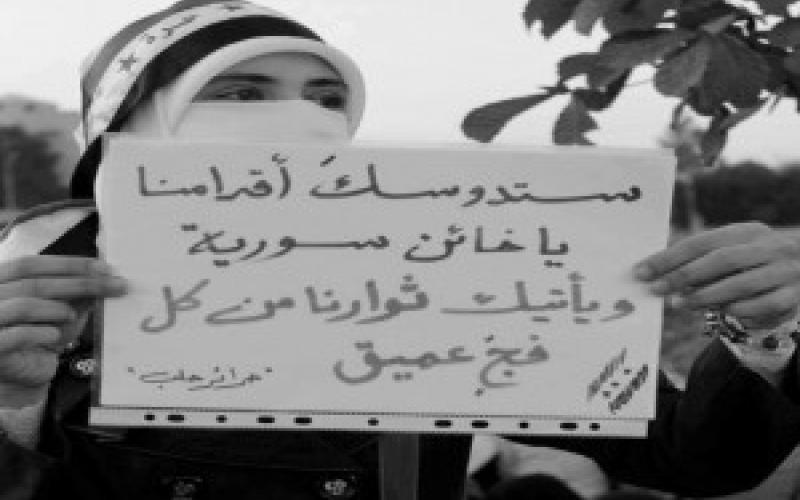 حرة
ستدوسكَ أقدامنا
يا خائن سورية
ويأتيك ثوارنا من كل
فجٍ عميق
"حرائر حلب"